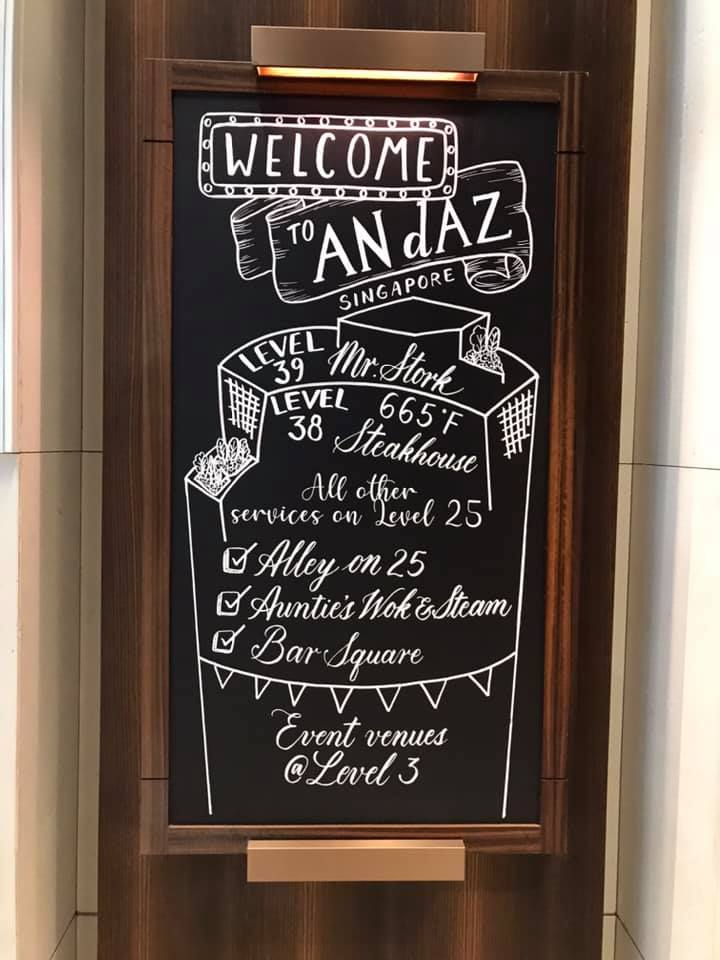 WELCOME
TO ANdAZ
SINGAPORE
LEVEL 39 Mr. Stork
LEVEL 38 665°F Steakhouse
All other
services on Level 25
Alley on 25
Auntie's Wok & Steam
Bar Square
Event venues
@ Level 3